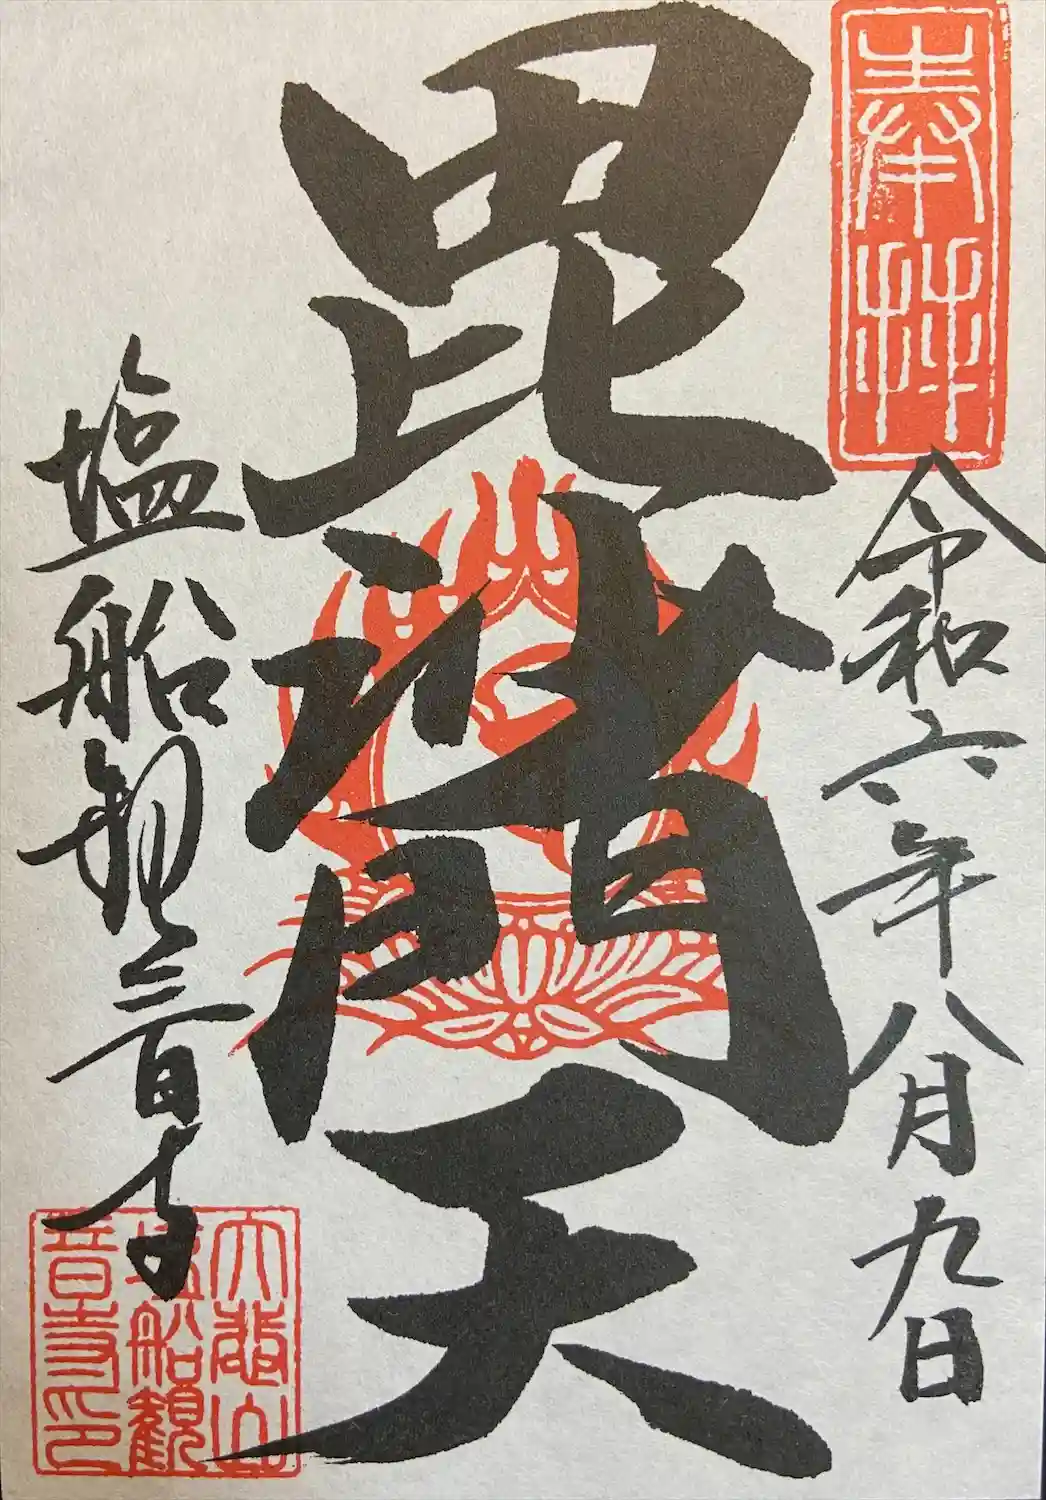 奉拝
令和六年八月九日
毘沙門天
塩船観音寺
大悲山
塩船観
音寺印